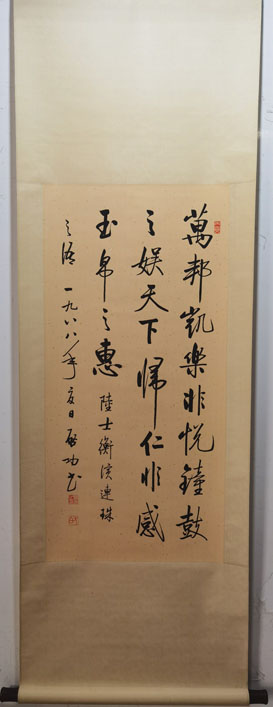 萬邦凱樂非悅鐘鼓
之娱天下歸仁非感
玉帛之惠 陸士衡演連珠
之語 一九八八年夏日 啟功書